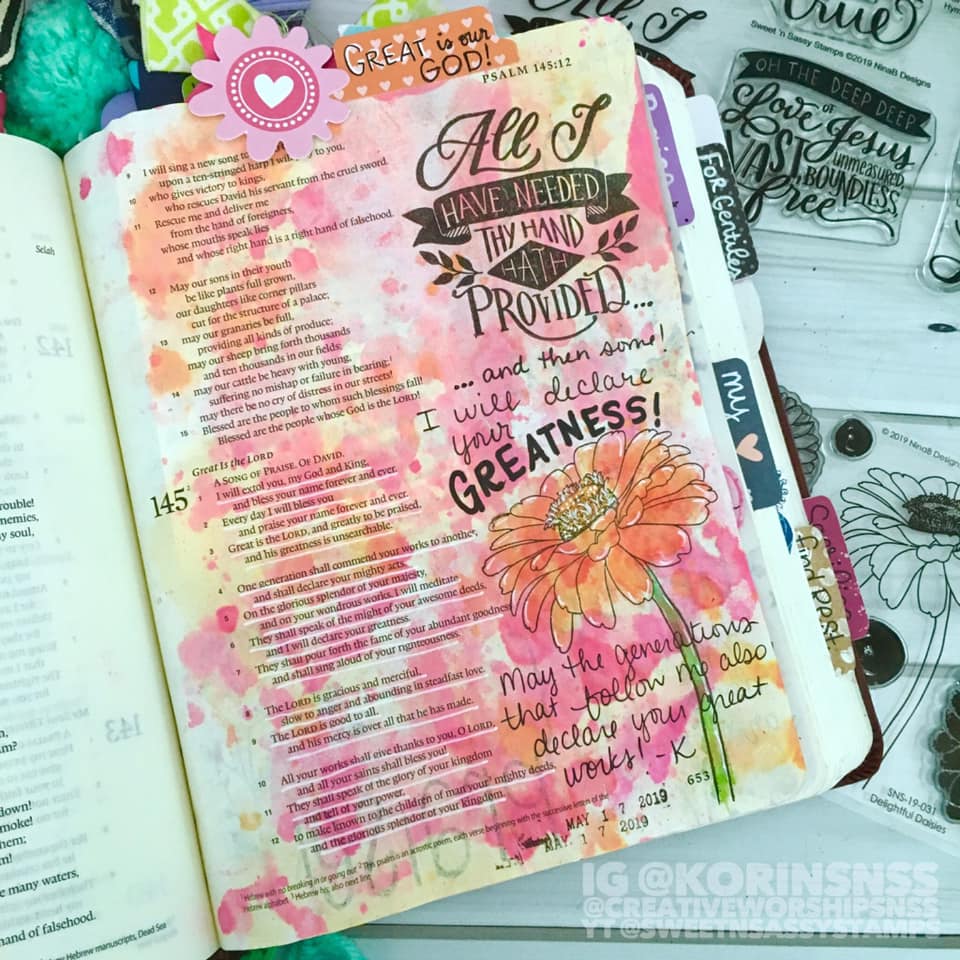 GREAT is our
GOD!
PSALM 145:12
9 I will sing a new song to
upon a ten-stringed harp I will to you,
10 who gives victory to kings,
who rescues David his servant from the cruel sword.
11 Rescue me and deliver me
from the hand of foreigners,
whose mouths speak lies
and whose right hand is a right hand of falsehood.
12 May our sons in their youth
be like plants full grown,
our daughters like corner pillars
cut for the structure of a palace;
13 may our granaries be full,
providing all kinds of produce;
may our sheep bring forth thousands
and ten thousands in our fields;
14 may our cattle be heavy with young,
suffering no mishap or failure in bearing;1
may there be no cry of distress in our streets!
15 Blessed are the people to whom such blessings fall!
Blessed are the people whose God is the LORD!
Great Is the LORD
145 2 A SONG OF PRAISE. OF DAVID.
1 I will extol you, my God and King,
and bless your name forever and ever.
2 Every day I will bless you
and praise your name forever and ever.
3 Great is the LORD, and greatly to be praised,
and his greatness is unsearchable.
4 One generation shall commend your works to another,
and shall declare your mighty acts.
5 On the glorious splendor of your majesty,
and on your wondrous works, I will meditate.
6 They shall speak of the might of your awesome deeds,
and I will declare your greatness.
7 They shall pour forth the fame of your abundant goodness
and shall sing aloud of your righteousness.
8 The LORD is gracious and merciful,
slow to anger and abounding in steadfast love.
9 The LORD is good to all,
and his mercy is over all that he has made.
10 All your works shall give thanks to you, O LORD,
and all your saints shall bless you!
11 They shall speak of the glory of your kingdom
and tell of your power,
12 to make known to the children of man your mighty deeds,
and the glorious splendor of your kingdom.
1 Hebrew with no breaking in or going out 2 This psalm is an acrostic poem, each verse beginning with the successive letters of the
Hebrew alphabet 3 Hebrew his; also next line
All I
HAVE NEEDED
THY HAND
HATH
PROVIDED...
... and then some!
I will declare
your
GREATNESS!
May the generations
that follow me also
declare your great
works! -K
653
MAY 1 7 2019
MAY. 1 7 2019
For Gentiles
my
Selah
142
143
rouble!
nemies,
y soul,
am?
down!
moke!
them:
m!
e many waters,
hand of falsehood.
Hebrew manuscripts, Dead Sea
All I
true
Sweet 'n Sassy Stamps ©2019 NinaB Designs
OH THE DEEP DEEP
Love OF Jesus
VAST, unmeasured,
BOUNDLESS,
free
© 2019 NinaB Designs
SNS-19-031
Delightful Daisies
IG @KORINSNSS
@CREATIVEWORSHIPSNSS
YT @SWEETNSASSYSTAMPS